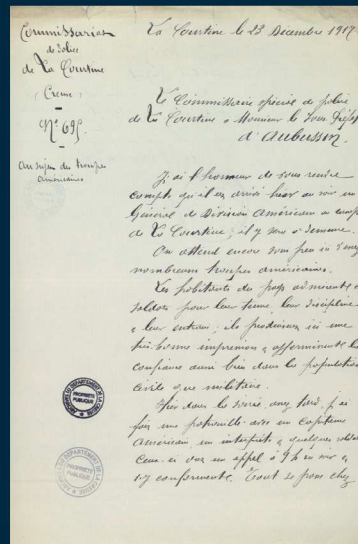 Commissariat
de Police
de La Courtine
(Creuse)
N° 695
Au sujet des troupes
américaines
La Courtine le 23 Décembre 1917
Le Commissaire spécial de police
de La Courtine à Monsieur le Sous Préfet
d'Aubusson.
J'ai l'honneur de vous rendre
compte qu'il est arrivé hier au soir un
Général de Division Américain au camp
de La Courtine; il y sera à demeure.
On attend encore sous peu ici d'assez
nombreuses troupes américaines.
Les habitants du pays admirent ces
soldats pour leur tenue, leur discipline
& leur entrain; ils produisent ici une
très bonne impression & affermissent la
confiance aussi bien dans la population
civile que militaire.
Hier dans la soirée, assez tard, j'ai
fait une patrouille avec un capitaine
Américain, un interprète & quelques soldats.
Ceux-ci ont un appel à 9 h du soir &
s'y conforment. Tout se passe chez
ARCHIVES DU DEPARTEMENT DE LA CREUSE
PROPRIETE
PUBLIQUE
ARCHIVES DU DEPARTEMENT DE LA CREUSE
PROPRIETE
PUBLIQUE